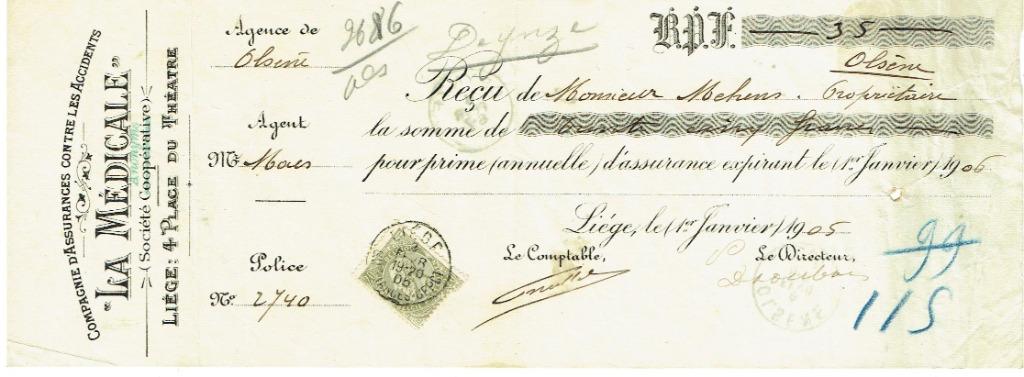 COMPAGNIE D'ASSURANCES CONTRE LES ACCIDENTS
"LA MÉDICALE"
(Société Coopérative)
LIÉGE: 4 PLACE DU THÉATRE
Agence de
Olsene
Agent
Mr Maes
Police
No. 2740
9686
Deynze
B.P.F. 35
Olsène
Reçu de Monsieur Mehens. Propriétaire
la somme de Trente cinq francs
pour prime (annuelle) d'assurance expirant le (1er Janvier) 1906
Liége, le (1er Janvier) 1905
Le Comptable,
Le Directeur,
99
115
19-20
05